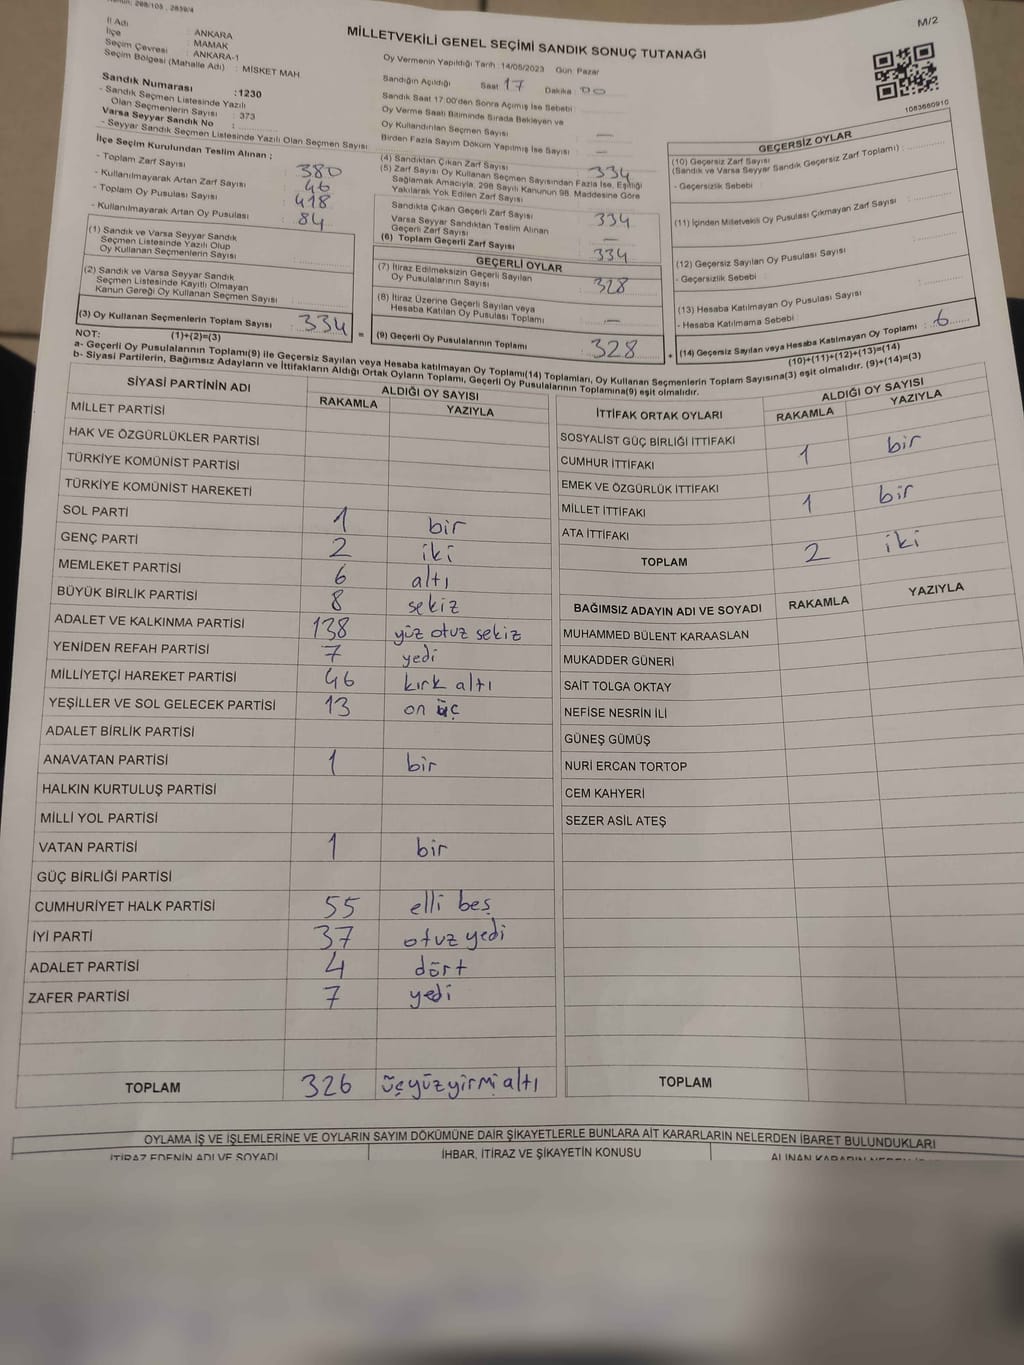 M/2
MİLLETVEKİLİ GENEL SEÇİMİ SANDIK SONUÇ TUTANAĞI
İl Adı : ANKARA
İlçe : MAMAK
Seçim Çevresi : ANKARA-1
Seçim Bölgesi (Mahalle Adı) : MİSKET MAH.
Sandık Numarası :1230
- Sandık Seçmen Listesinde Yazılı
Olan Seçmenlerin Sayısı : 373
Varsa Seyyar Sandık No :
- Seyyar Sandık Seçmen Listesinde Yazılı Olan Seçmen Sayısı :
Oy Vermenin Yapıldığı Tarih :14/05/2023 Gün: Pazar
Sandığın Açıldığı Saat 17 Dakika : 00
Sandık Saat 17:00'den Sonra Açılmış İse Sebebi :
Oy Verme Saati Bitiminde Sırada Bekleyen ve
Oy Kullandırılan Seçmen Sayısı —
Birden Fazla Sayım Döküm Yapılmış İse Sayısı : —
1083660910
İlçe Seçim Kurulundan Teslim Alınan ;
- Toplam Zarf Sayısı : 380
- Kullanılmayarak Artan Zarf Sayısı : 46
- Toplam Oy Pusulası Sayısı : 418
- Kullanılmayarak Artan Oy Pusulası : 84
(1) Sandık ve Varsa Seyyar Sandık
Seçmen Listesinde Yazılı Olup
Oy Kullanan Seçmenlerin Sayısı
(2) Sandık ve Varsa Seyyar Sandık
Seçmen Listesinde Kayıtlı Olmayan
Kanun Gereği Oy Kullanan Seçmen Sayısı
(3) Oy Kullanan Seçmenlerin Toplam Sayısı : 334 =
(1)+(2)=(3)
(4) Sandıktan Çıkan Zarf Sayısı 334
(5) Zarf Sayısı Oy Kullanan Seçmen Sayısından Fazla İse, Eşitliği
Sağlamak Amacıyla, 298 Sayılı Kanunun 98. Maddesine Göre
Yakılarak Yok Edilen Zarf Sayısı
Sandıkta Çıkan Geçerli Zarf Sayısı 334
Varsa Seyyar Sandıktan Teslim Alınan
Geçerli Zarf Sayısı —
(6) Toplam Geçerli Zarf Sayısı 334
GEÇERLİ OYLAR
(7) İtiraz Edilmeksizin Geçerli Sayılan
Oy Pusulalarının Sayısı 328
(8) İtiraz Üzerine Geçerli Sayılan veya
Hesaba Katılan Oy Pusulası Toplamı —
(9) Geçerli Oy Pusulalarının Toplamı 328 +
GEÇERSİZ OYLAR
(10) Geçersiz Zarf Sayısı
(Sandık ve Varsa Seyyar Sandık Geçersiz Zarf Toplamı) :
- Geçersizlik Sebebi :
(11) İçinden Milletvekili Oy Pusulası Çıkmayan Zarf Sayısı
(12) Geçersiz Sayılan Oy Pusulası Sayısı
- Geçersizlik Sebebi :
(13) Hesaba Katılmayan Oy Pusulası Sayısı
- Hesaba Katılmama Sebebi :
(14) Geçersiz Sayılan veya Hesaba Katılmayan Oy Toplamı : 6
(10)+(11)+(12)+(13)=(14)
NOT:
a- Geçerli Oy Pusulalarının Toplamı(9) ile Geçersiz Sayılan veya Hesaba katılmayan Oy Toplamı(14) Toplamları, Oy Kullanan Seçmenlerin Toplam Sayısına(3) eşit olmalıdır. (9)+(14)=(3)
b- Siyasi Partilerin, Bağımsız Adayların ve İttifakların Aldığı Ortak Oyların Toplamı, Geçerli Oy Pusulalarının Toplamına(9) eşit olmalıdır.
SİYASİ PARTİNİN ADI ALDIĞI OY SAYISI
RAKAMLA YAZIYLA
MİLLET PARTİSİ
HAK VE ÖZGÜRLÜKLER PARTİSİ
TÜRKİYE KOMÜNİST PARTİSİ
TÜRKİYE KOMÜNİST HAREKETİ
SOL PARTİ 1 bir
GENÇ PARTİ 2 iki
MEMLEKET PARTİSİ 6 altı
BÜYÜK BİRLİK PARTİSİ 8 sekiz
ADALET VE KALKINMA PARTİSİ 138 yüz otuz sekiz
YENİDEN REFAH PARTİSİ 7 yedi
MİLLİYETÇİ HAREKET PARTİSİ 46 kırk altı
YEŞİLLER VE SOL GELECEK PARTİSİ 13 on üç
ADALET BİRLİK PARTİSİ
ANAVATAN PARTİSİ 1 bir
HALKIN KURTULUŞ PARTİSİ
MİLLİ YOL PARTİSİ
VATAN PARTİSİ 1 bir
GÜÇ BİRLİĞİ PARTİSİ
CUMHURİYET HALK PARTİSİ 55 elli beş
İYİ PARTİ 37 otuz yedi
ADALET PARTİSİ 4 dört
ZAFER PARTİSİ 7 yedi
TOPLAM 326 üçyüzyirmi altı
İTTİFAK ORTAK OYLARI ALDIĞI OY SAYISI
RAKAMLA YAZIYLA
SOSYALİST GÜÇ BİRLİĞİ İTTİFAKI
CUMHUR İTTİFAKI 1 bir
EMEK VE ÖZGÜRLÜK İTTİFAKI
MİLLET İTTİFAKI 1 bir
ATA İTTİFAKI
TOPLAM 2 iki
BAĞIMSIZ ADAYIN ADI VE SOYADI RAKAMLA YAZIYLA
MUHAMMED BÜLENT KARAASLAN
MUKADDER GÜNERİ
SAİT TOLGA OKTAY
NEFİSE NESRİN İLİ
GÜNEŞ GÜMÜŞ
NURİ ERCAN TORTOP
CEM KAHYERİ
SEZER ASİL ATEŞ
TOPLAM
OYLAMA İŞ VE İŞLEMLERİNE VE OYLARIN SAYIM DÖKÜMÜNE DAİR ŞİKAYETLERLE BUNLARA AİT KARARLARIN NELERDEN İBARET BULUNDUKLARI
İTİRAZ EDENİN ADI VE SOYADI İHBAR, İTİRAZ VE ŞİKAYETİN KONUSU